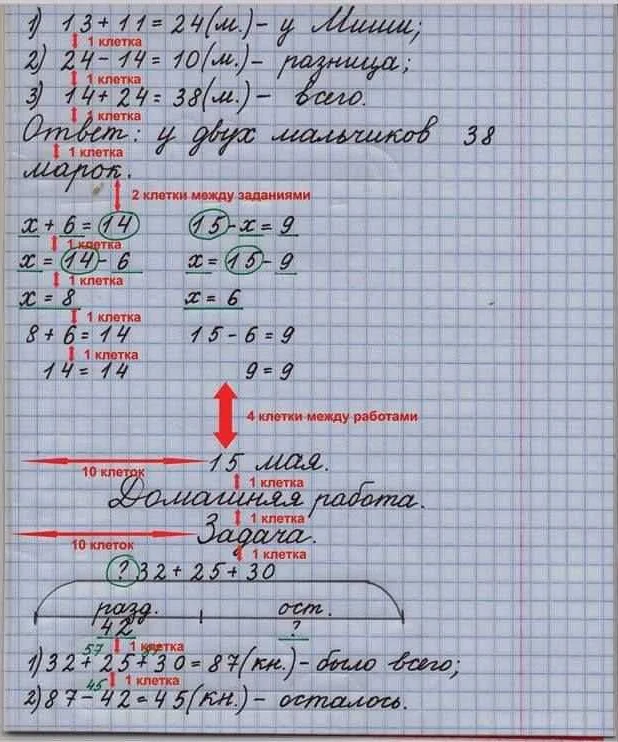 1) 13 + 11 = 24 (м.) – у Миши;
1 клетка
2) 24 – 14 = 10 (м.) – разница;
1 клетка
3) 14 + 24 = 38 (м.) – всего.
1 клетка
Ответ: у двух мальчиков 38
1 клетка
марок.
2 клетки между заданиями
x + 6 = 14 15 - x = 9
1 клетка
x = 14 - 6 x = 15 - 9
1 клетка
x = 8 x = 6
1 клетка
8 + 6 = 14 15 - 6 = 9
1 клетка
14 = 14 9 = 9
4 клетки между работами
15 мая.
10 клеток 1 клетка
Домашняя работа.
1 клетка
Задача.
10 клеток 1 клетка
? 32 + 25 + 30
разд. ост.
42 ?
57 87 1 клетка
1) 32 + 25 + 30 = 87 (кн.) – было всего;
45 1 клетка
2) 87 – 42 = 45 (кн.) – осталось.